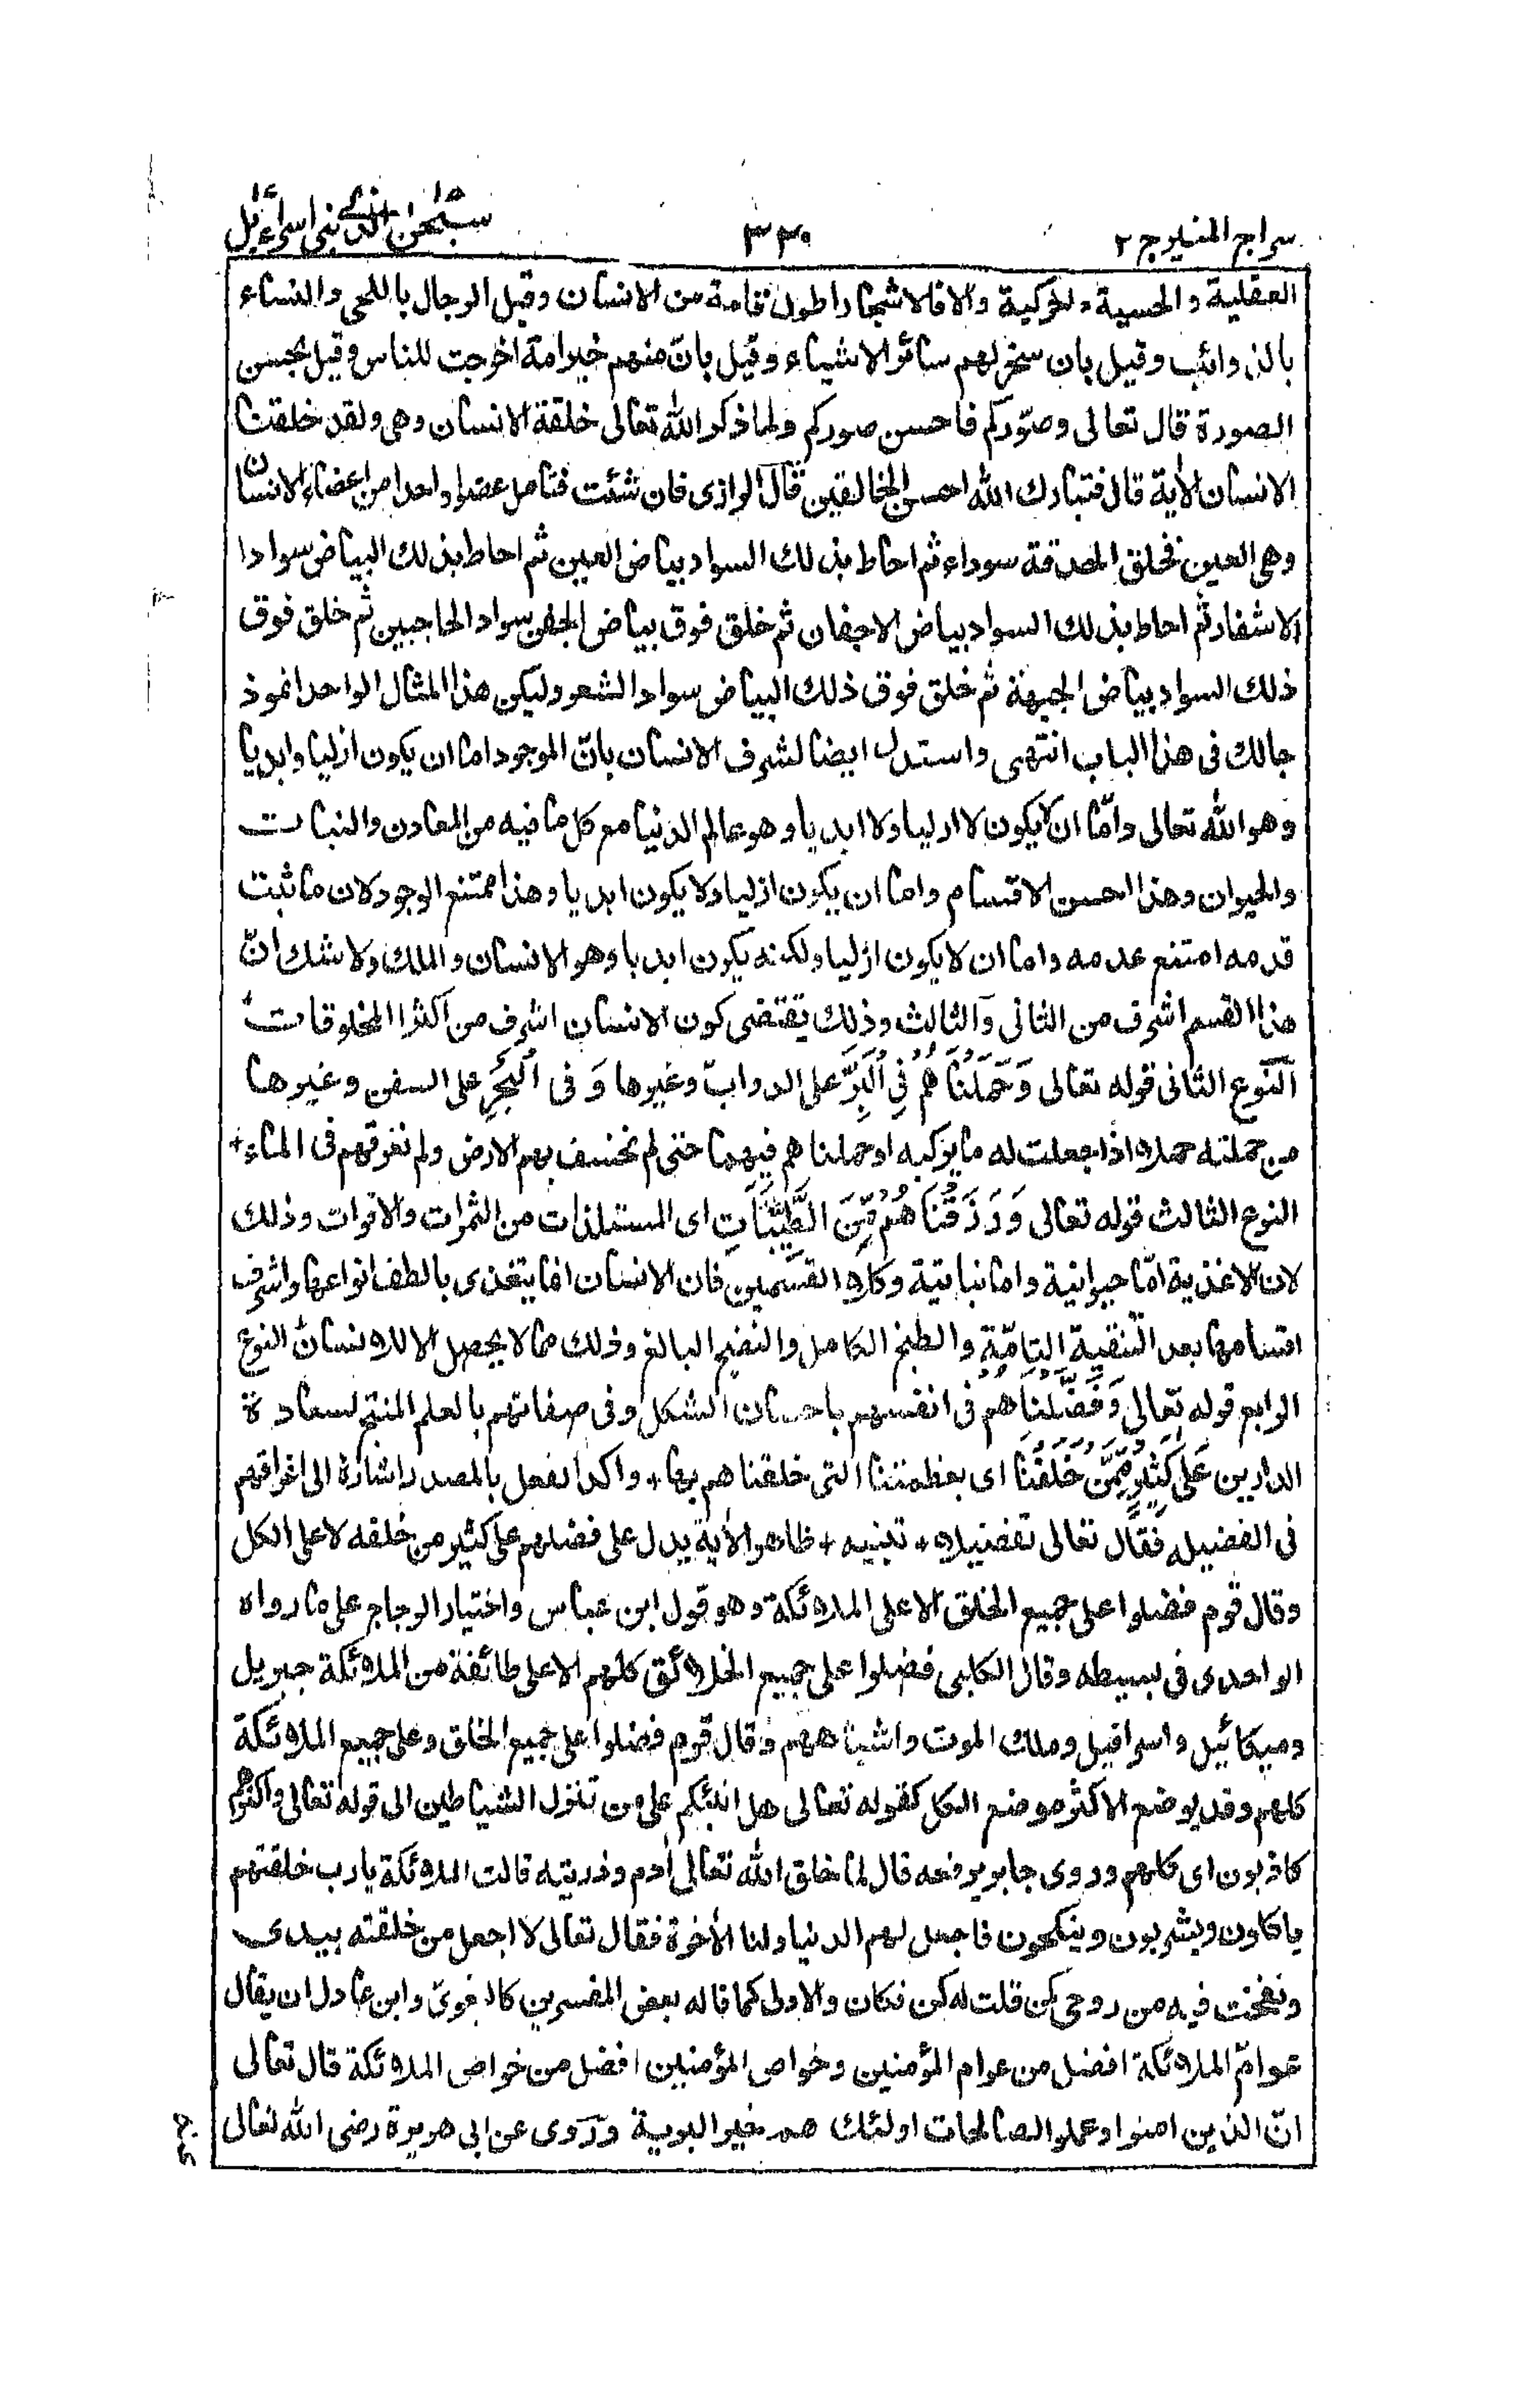 سراج المنير ج ٢
٣٣٠
سبحن الذى بنى اسراءيل
العقلية والحسية والحركية والا فالاشجار اطول قامة من الانسان وقيل الرجال باللحى والنساء
بالذوائب وقيل بان سخر لهم سائر الاشياء وقيل بانّ منهم خير امة اخرجت للناس وقيل بحسن
الصورة قال تعالى وصوّركم فاحسن صوركم ولما ذكر الله تعالى خلقة الانسان وهى ولقد خلقنا
الانسان الأية قال فتبارك الله احسن الخالقين قال الرازى فان شئت فتامل عضوا واحدا من اعضاء الانسان
وهى العين فخلق الحدقة سوداء ثم احاط بذلك السواد بياض العين ثم احاط بذلك البياض سوادا
الاشفار ثم احاط بذلك السواد بياض الاجفان ثم خلق فوق بياض الجفن سواد الحاجبين ثم خلق فوق
ذلك السواد بياض الجبهة ثم خلق فوق ذلك البياض سواد الشعر وليكن هذا المثال الواحد انموذ
جالك فى هذا الباب انتهى واستدل ايضا لشرف الانسان بانّ الموجود اما ان يكون ازليا وابديا
وهو الله تعالى وامّا ان لا يكون لا ازليا ولا ابديا وهو عالم الدنيا مع كل ما فيه من المعادن والنبات
والحيوان وهذا احسن الاقسام واما ان يكون ازليا ولا يكون ابديا وهذا ممتنع الوجود لان ما ثبت
قدمه امتنع عدمه واما ان لا يكون ازليا ولكنه يكون ابديا وهو الانسان والملك ولا شك انّ
هذا القسم اشرف من الثانى والثالث وذلك يقتضى كون الانسان اشرف من اكثر المخلوقات
النوع الثانى قوله تعالى وَحَمَلْنَاهُمْ فِي الْبَرِّ على الدوابّ وغيرها وَ فى الْبَحْرِ على السفن وغيرها
من حملته حملا اذا جعلت له ما يركبه او حملنا هم فيهما حتى لم نخسف بهم الارض ولم نغرقهم فى الماء +
النوع الثالث قوله تعالى وَرَزَقْنَاهُمْ مِّنَ الطَّيِّبَاتِ اى المستلذات من الثمرات والاقوات وذلك
لان الاغذية امّا حيوانية واما نباتية وكلا القسمين فان الانسان انما يتغذى بالطف انواعها واشرف
اقسامها بعد التنقية التامّة والطبخ الكامل والنضج البالغ وذلك مما لا يحصل الا للانسان النوع
الرابع قوله تعالى وَفَضَّلْنَاهُمْ فى انفسهم باحسان الشكل وفى صفاتهم بالعلم المنتج لسعادة
الدارين عَلٰى كَثِيْرٍ مِّمَّنْ خَلَقْنَا اى بعظمتنا التى خلقنا هم بها + واكد الفعل بالمصدر اشارة الى اغراقهم
فى الفضيلة فقال تعالى تفضيلا + تنبيه + ظاهر الأية يدل على فضلهم على كثير من خلقه لا على الكل
وقال قوم فضلوا على جميع الخلق الا على الملائكة وهو قول ابن عباس واختيار الزجاج على ما رواه
الواحدى فى بسيطه وقال الكلبى فضلوا على جميع الخلائق كلهم الا على طائفة من الملائكة جبريل
وميكائيل واسرافيل وملك الموت واشباههم وقال قوم فضلوا على جميع الخلق وعلى جميع الملائكة
كلهم وقد يوضع الاكثر موضع الكل كقوله تعالى هل انبئكم على من تنزل الشياطين الى قوله تعالى واكثرهم
كاذبون اى كلهم وروى جابر يرفعه قال لما خلق الله تعالى أدم وذريته قالت الملائكة يارب خلقتهم
ياكلون ويشربون وينكحون فاجعل لهم الدنيا ولنا الأخرة فقال تعالى لا اجعل من خلقته بيدى
ونفخت فيه من روحى كمن قلت له كن فكان والاولى كما قاله بعض المفسرين كالبغوىّ وابن عادل ان يقال
عوامّ الملائكة افضل من عوام المؤمنين وخواص المؤمنين افضل من خواص الملائكة قال تعالى
انّ الذين امنوا وعملوا الصالحات اولئك هم خير البرية وروى عن ابى هريرة رضى الله تعالى